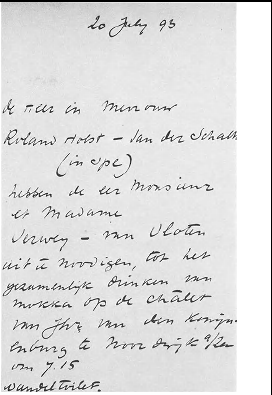 20 July 93
de Heer en Mevrouw
Roland Holst – van der Schalk
(in spe)
hebben de eer Monsieur
et Madame
Verwey – van Vloten
uit te noodigen, tot het
gezamenlijk drinken van
mokka op de châlet
van van den Konijn-
enburg te Noordwijk a/Zee
om 7.15
wandeltoilet.